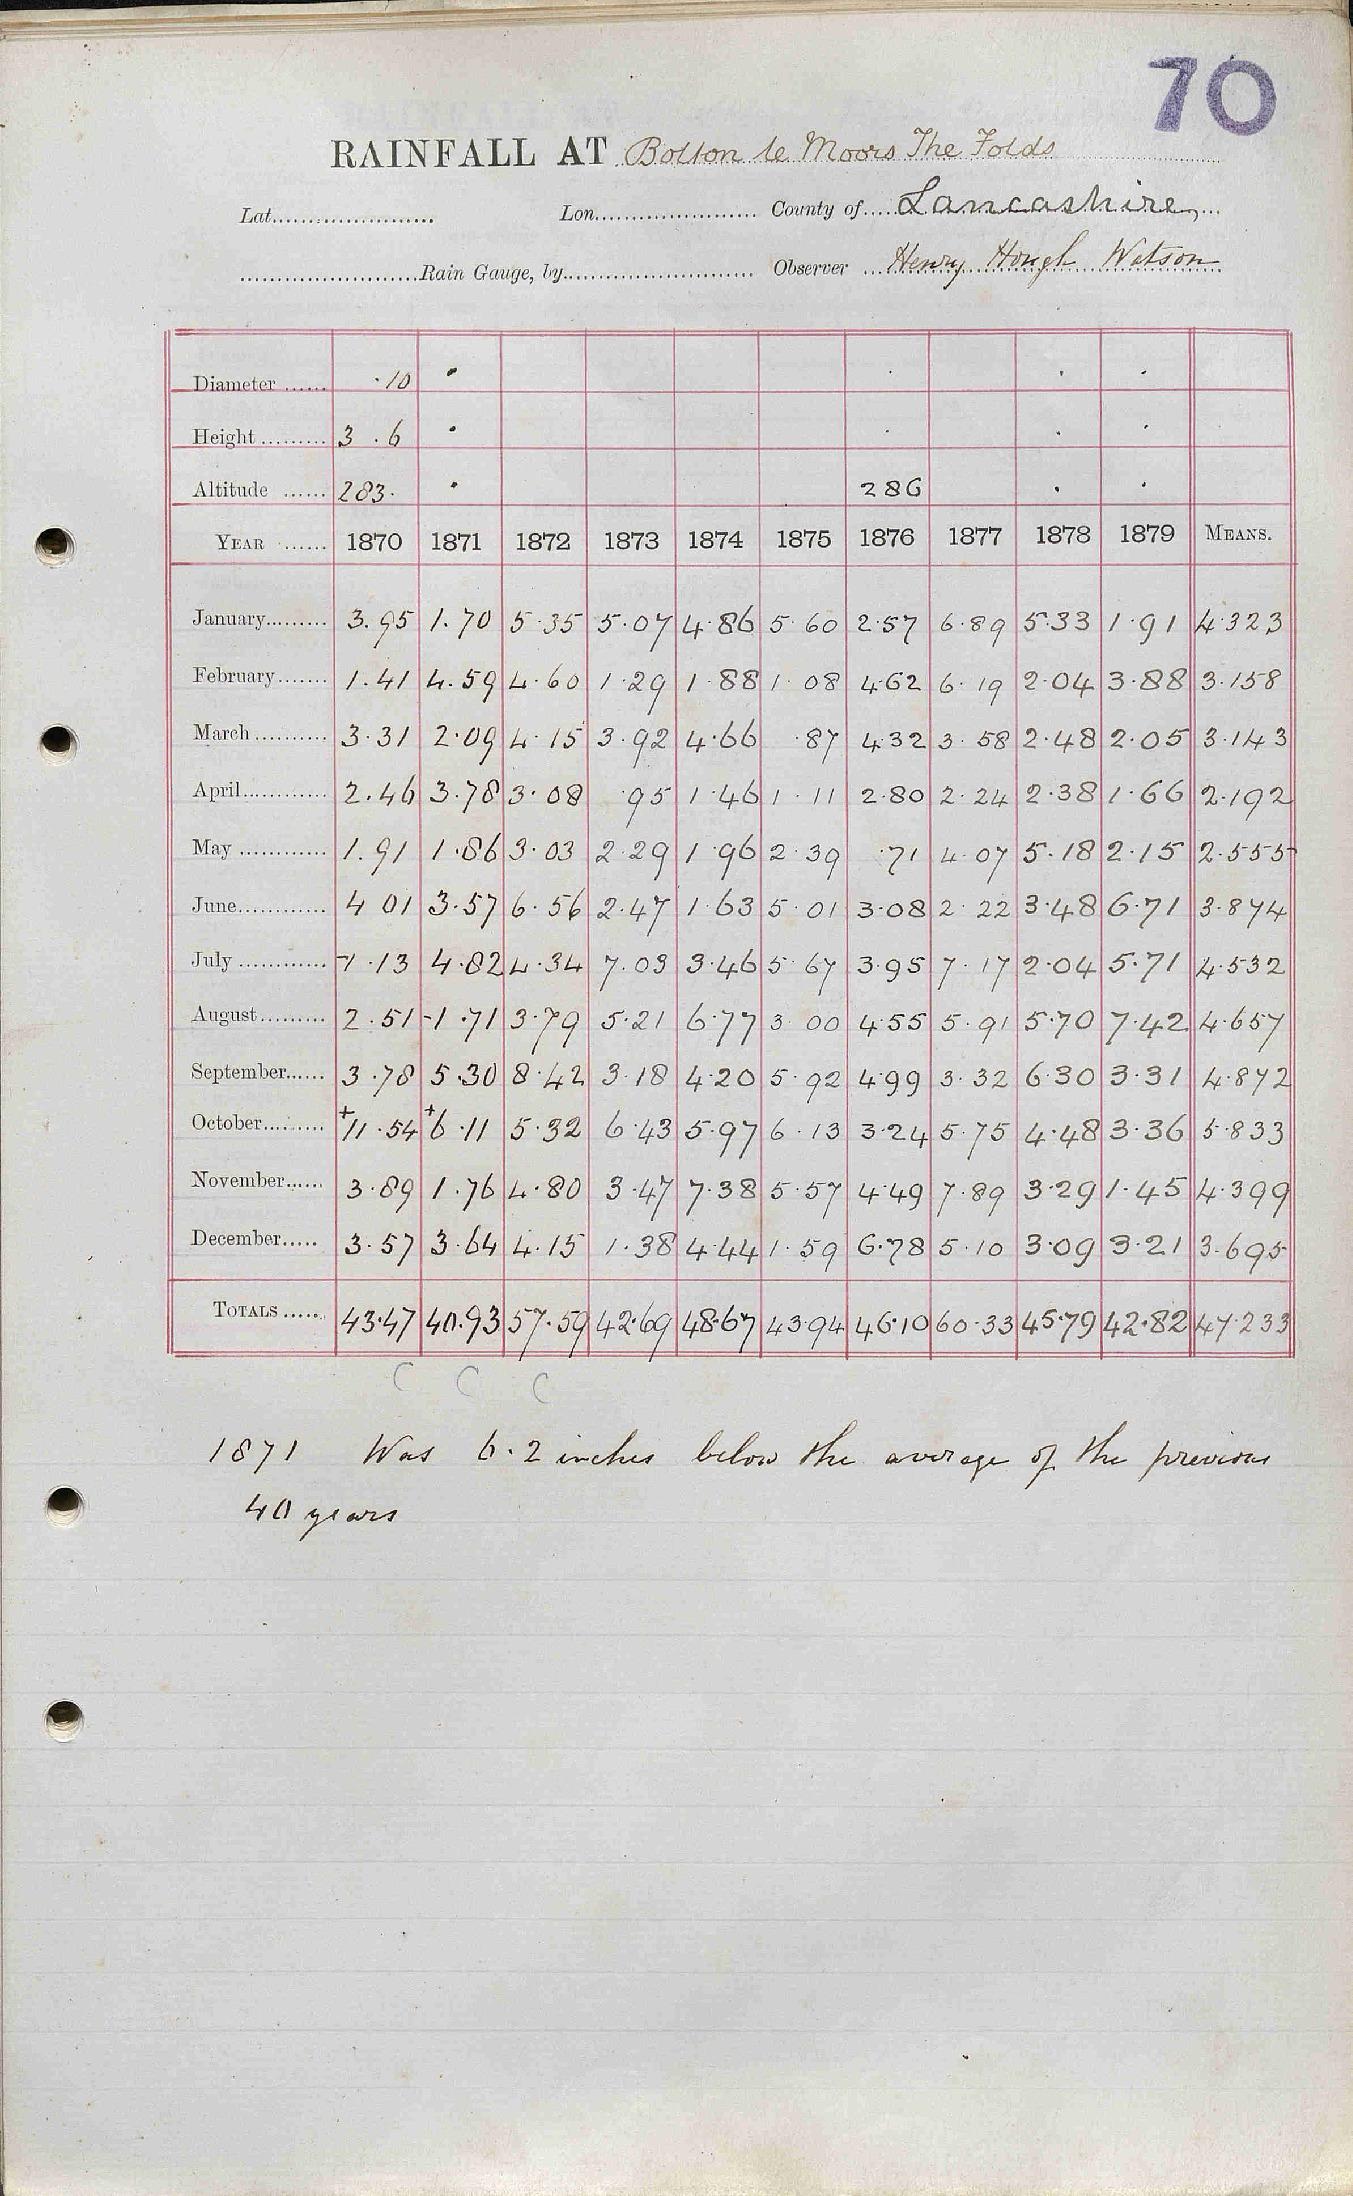 70
RAINFALL AT Bolton le Moors The Folds
Lat...................... Lon....................... County of.... Lancashire
.........................Rain Gauge, by.......................... Observer ... Henry Hough Watson
Diameter ...... ·10 ·
Height ......... 3 . 6 ·
Altitude ...... 283· · 286
YEAR ...... 1870 1871 1872 1873 1874 1875 1876 1877 1878 1879 MEANS.
January......... 3.95 1.70 5·35 5·07 4·86 5·60 2·57 6·89 5·33 1·91 4·323
February....... 1.41 4.59 4·60 1·29 1·88 1·08 4·62 6·19 2·04 3·88 3·158
March .......... 3·31 2·09 4·15 3·92 4·66 ·87 4·32 3·58 2·48 2·05 3·143
April............ 2.46 3.78 3·08 ·95 1·46 1·11 2·80 2·24 2·38 1·66 2·192
May ............ 1.91 1·86 3·03 2·29 1·96 2·39 ·71 4·07 5·18 2·15 2·555
June............ 4 01 3·57 6·56 2·47 1·63 5·01 3·08 2·22 3·48 6·71 3·874
July ............ -1·13 4·82 4·34 7·03 3·46 5·67 3·95 7·17 2·04 5·71 4·532
August......... 2.51 -1·71 3·79 5·21 6·77 3·00 4·55 5·91 5·70 7·42 4·657
September...... 3·78 5·30 8·42 3·18 4·20 5·92 4·99 3·32 6·30 3·31 4·872
October......... +11·54 +6·11 5·32 6·43 5·97 6·13 3·24 5·75 4·48 3·36 5·833
November...... 3·89 1·76 4·80 3·47 7·38 5·57 4·49 7·89 3·29 1·45 4·399
December..... 3·57 3·64 4·15 1·38 4·44 1·59 6·78 5·10 3·09 3·21 3·695
TOTALS ...... 43·47 40·93 57·59 42·69 48·67 43·94 46·10 60·33 45·79 42·82 47·233
C C C
1871 Was 6·2 inches below the average of the previous
40 years